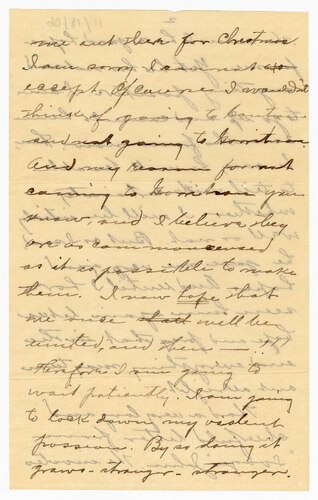 me out there for Christmas.
I am sorry I can not
except. Of course I wouldn't
think of going to
and not going to
And my reason for not
coming to you
know, and I believe they
are as common sensed
as it is possible to make
them. I now hope that
we use shall will be
united, and then —
Therefore I am going to
wait patiently. I am going
to lock down my violent
passion. By so doing it
grows - stronger - stronger.